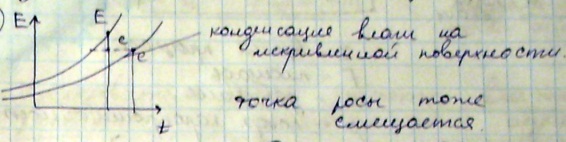 E E
конденсация влаги на
e e
искривленной поверхности.
точка росы тоже
t
смещается.